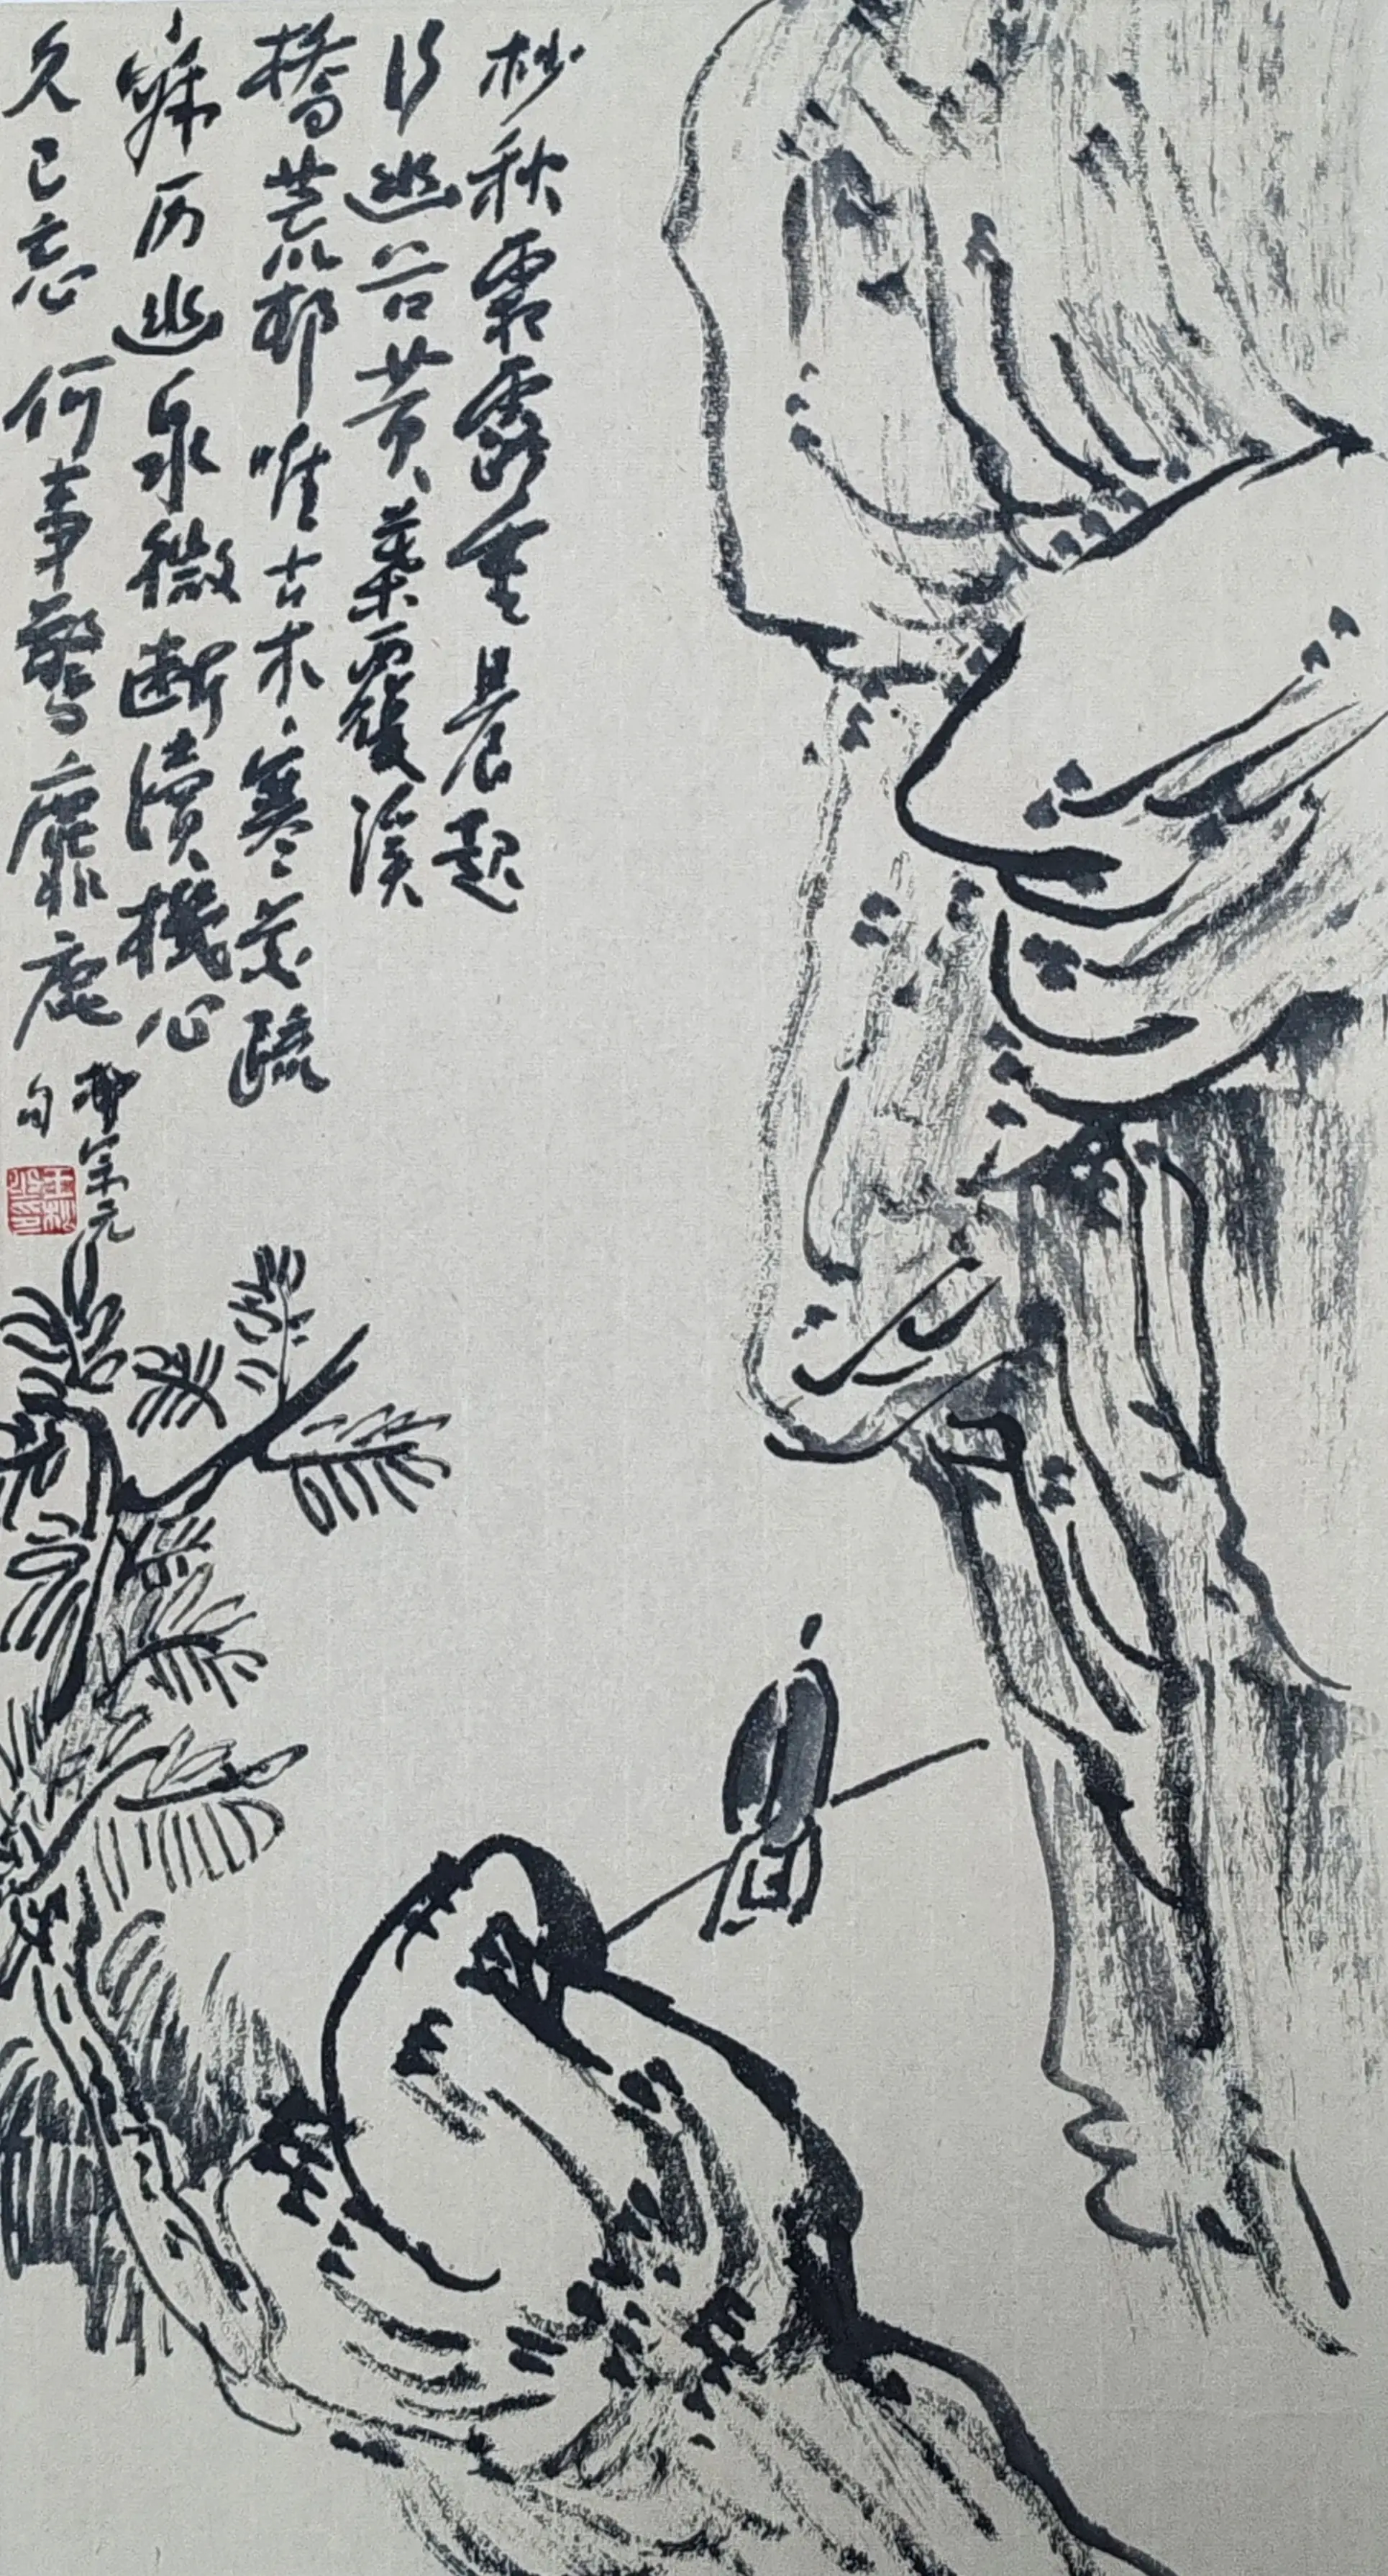 杪秋霜露重晨起
行幽谷黄葉覆溪
橋荒邨唯古木寒花疏
寂历幽泉微断續機心
久已忘何事驚麋鹿
柳宗元
句